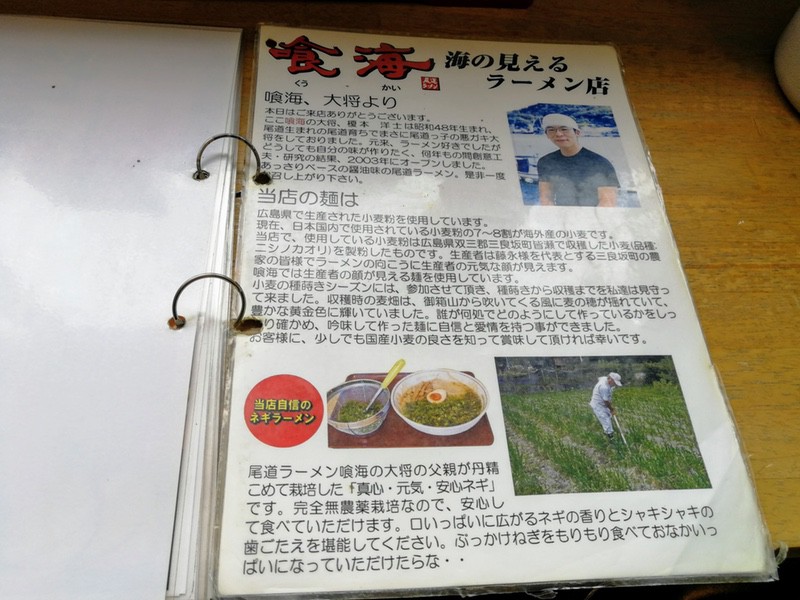 喰海
くう かい
海の見える
ラーメン店
喰海、大将より
本日はご来店ありがとうございます。
ここ喰海の大将、榎本 洋士は昭和48年生まれ、
尾道生まれの尾道育ちでまさに尾道っ子の悪ガキ大
将をしておりました。元来、ラーメン好きでしたが
どうしても自分の味が作りたく、何年もの間創意工
夫・研究の結果、2003年にオープンしました。
あっさりベースの醤油味の尾道ラーメン。是非一度
召し上がり下さい。
当店の麺は
広島県で生産された小麦粉を使用しています。
現在、日本国内で使用されている小麦粉の7〜8割が海外産の小麦です。
当店で、使用している小麦粉は広島県双三郡三良坂町皆瀬で収穫した小麦(品種:
ニシノカオリ)を製粉したものです。生産者は藤永様を代表とする三良坂町の農
家の皆様でラーメンの向こうに生産者の元気な顔が見えます。
喰海では生産者の顔が見える麺を使用しています。
小麦の種蒔きシーズンには、参加させて頂き、種蒔きから収穫までを私達は見守っ
て来ました。収穫時の麦畑は、御箱山から吹いてくる風に麦の穂が揺れていて、
豊かな黄金色に輝いていました。誰が何処でどのようにして作っているかをしっ
り確かめ、吟味して作った麺に自信と愛情を持つ事ができました。
お客様に、少しでも国産小麦の良さを知って賞味して頂ければ幸いです。
当店自信の
ネギラーメン
尾道ラーメン喰海の大将の父親が丹精
こめて栽培した「真心・元気・安心ネギ」
です。完全無農薬栽培なので、安心し
て食べていただけます。口いっぱいに広がるネギの香りとシャキシャキの
歯ごたえを堪能してください。ぶっかけねぎをもりもり食べておなかいっ
ぱいになっていただけたらな・・